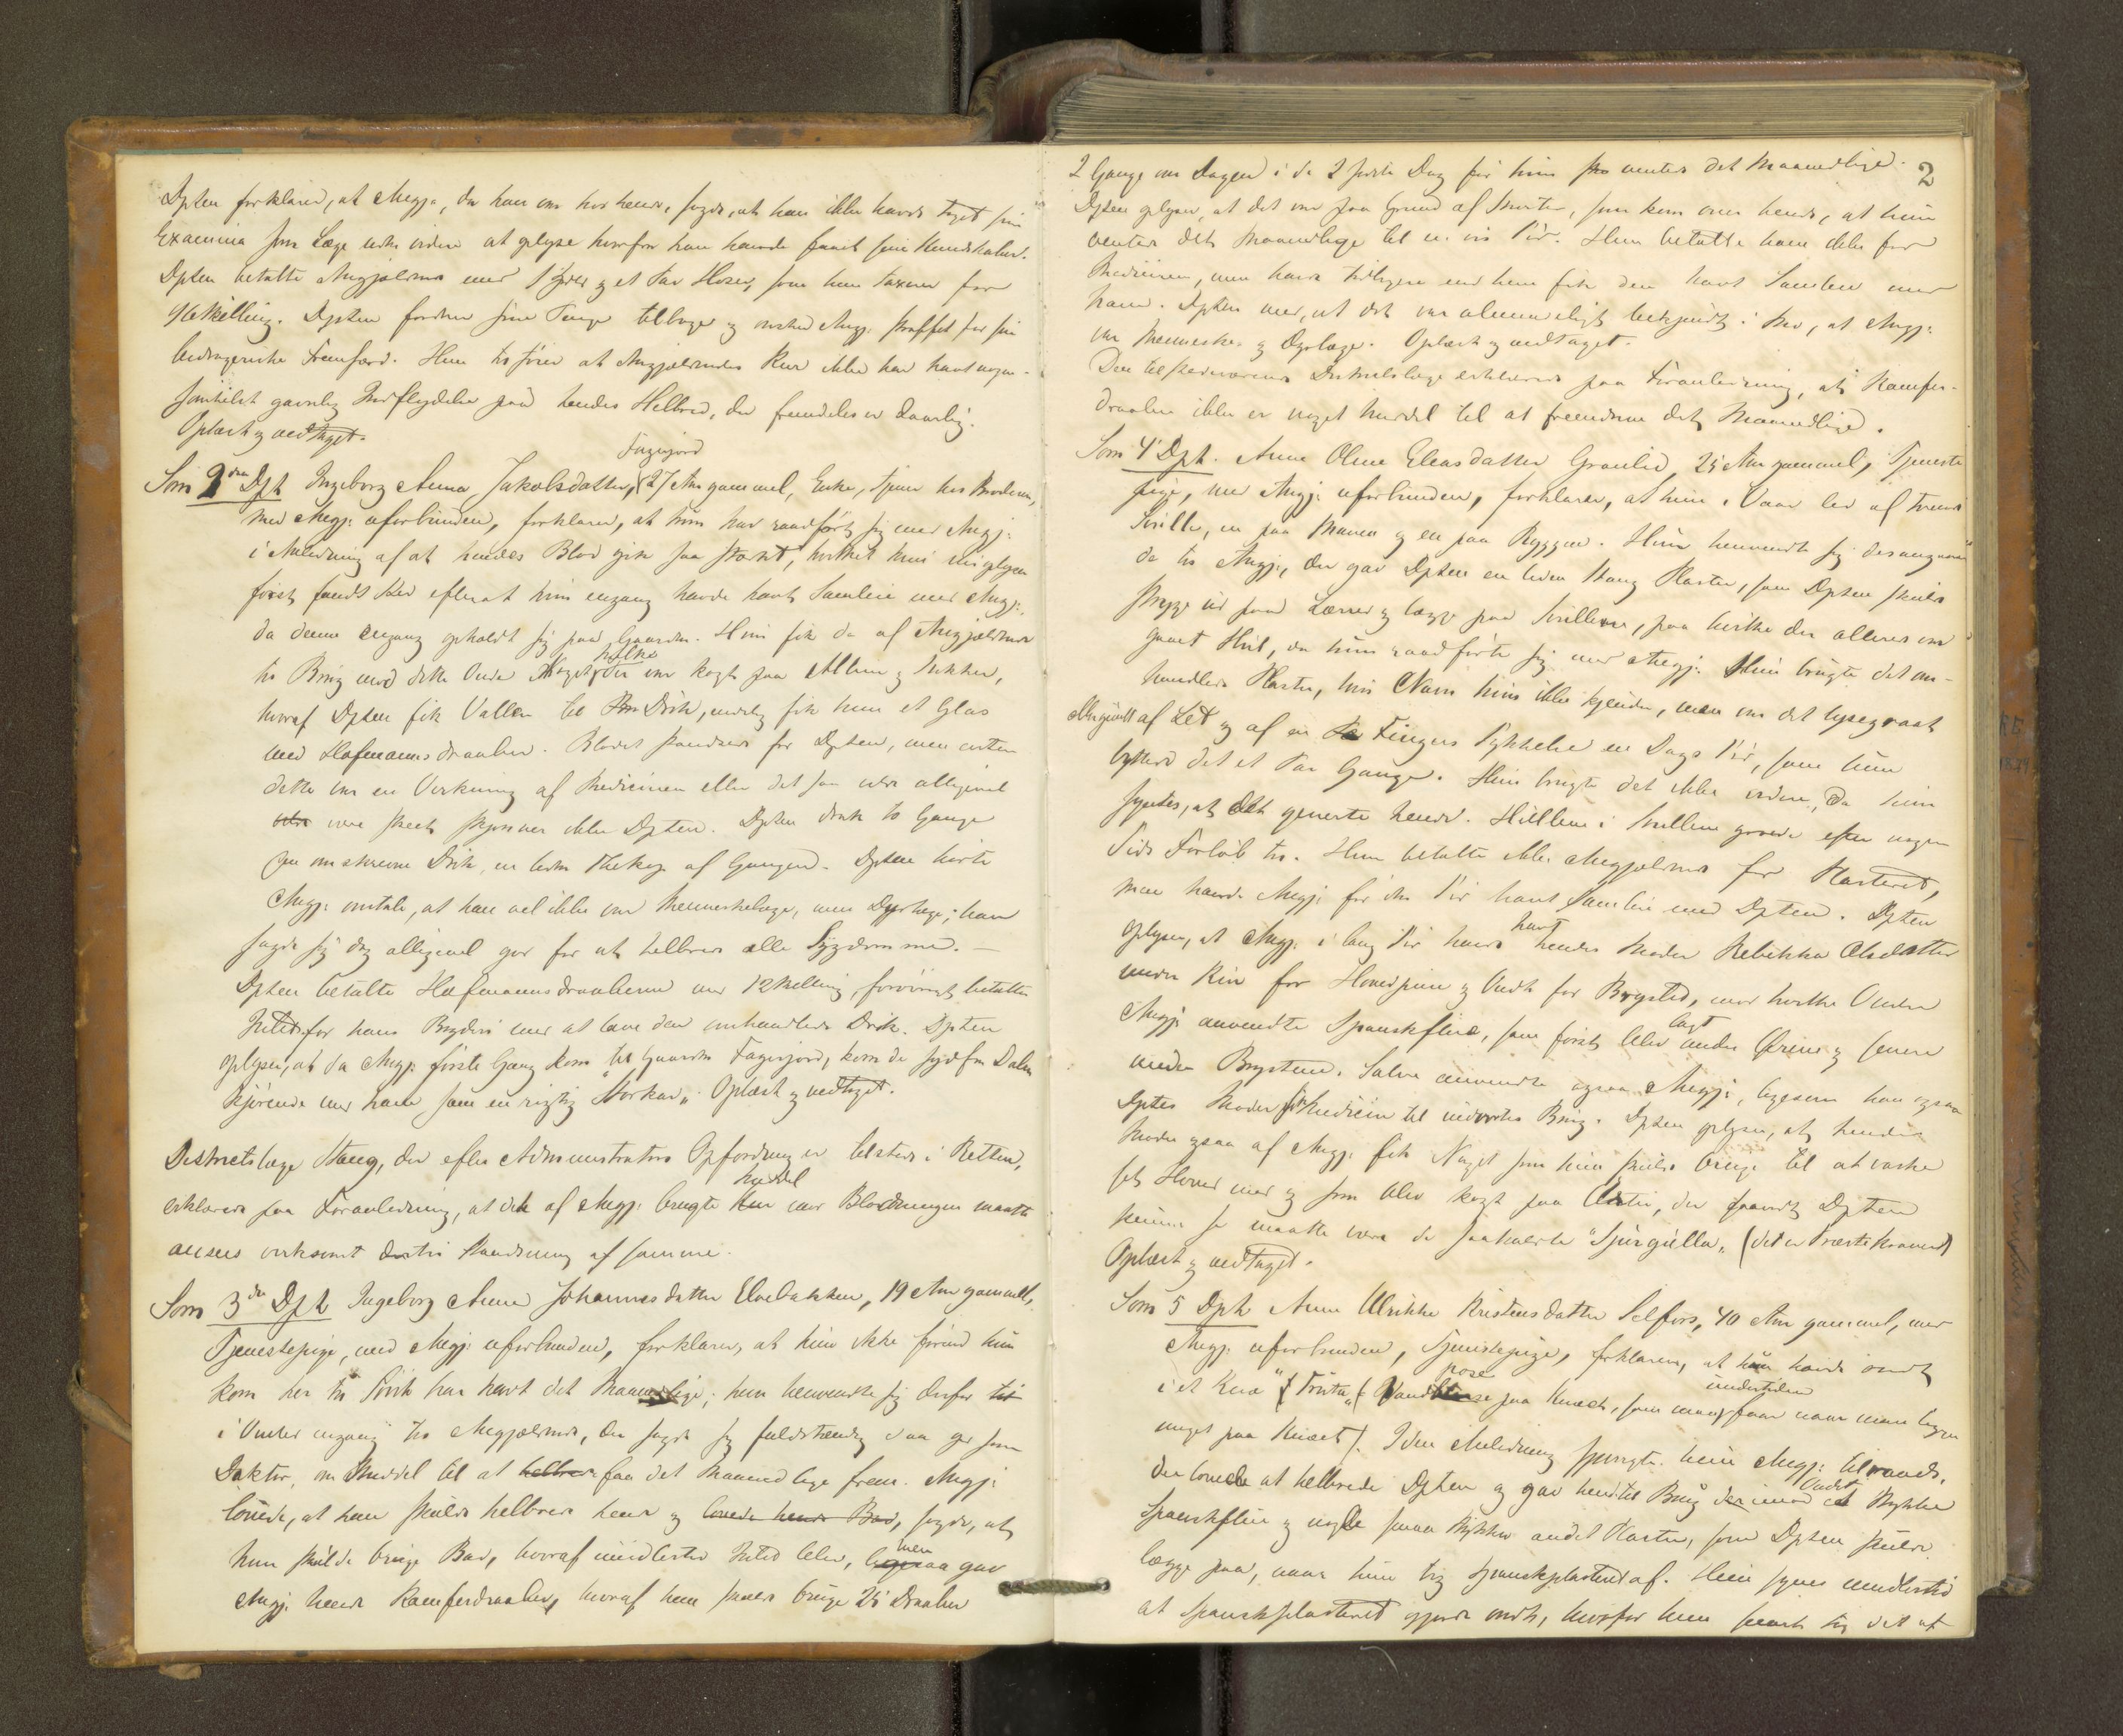 Dptn forklarer, at Angj., da han var hos hende, sagde, at han ikke havde taget sin
Examina som Læge uden videre at oplyse hvorfor han havde faaet sin Kundskaber.
Dptn betalte Angjældende med 1 og et Par Hoser, som hun taxerer for
96 Skilling. Dptn fordrer sine Penge tilbage og ønsker Angj. straffet for sin
bedragerske Fremfærd. Hun tilføier at Angjældendes Kur ikke har havt nogen
somhelst gavnlig Indflydelse paa hendes Helbred, der fremdeles er daarlig.
Oplæst og vedtaget.
Fagerjord
Som 2den Dpt Ingeborg Anna Jakobsdatter, 27 Aar gammel, Enke, tjener hos Broderen,
med Angj. uforbunden, forklarer, at hun har raadført sig med Angj.
i Anledning af at hendes Blod gik saa stærkt, hvilket hun oplyser
først fandt Sted efterat hun engang havde havt Samleie med Angj.,
da denne engang opholdt sig paa Gaarden. Hun fik da af Angjældende
til Brug mod dette Onde Noget, der var kogt paa Allun og Sukker,
hvilke
hvoraf Dptn fik Vallen til Drik, endelig fik hun et Glas
med Hofmannsdraaber. Blodet standsede for Dptn, men enten
dette var en Virkning af Medicinen eller det saa vilde alligevel
være skeet skjønner ikke Dptn. Dptn drak to Gange
om Drik, en liden Thekop af Gangen. Dptn hørte
Angj. omtale, at han vel ikke var Menneskelæge, men Dyrlæge; han
sagde sig dog alligevel god for at helbrede alle Sygdomme.
Dptn betalte Hofmannsdraaberne med 12 Skilling, forøvrigt betalte
Intet for hans Bryderi med at lave den omhandlede Drik. Dptn
oplyser, at da Angj. første Gang kom til Gaarden Fagerjord, kom de syd fra Dalen
kjørende med ham som en rigtig "Storkar". Oplæst og vedtaget.
Districtslæge Stang, der efter Administrators Opfordring er tilstede i Retten,
Middel
erklærede paa Foranledning, at det af Angj. brugte mod Blødningen maatte
ansees virksomt til Standsning af samme.
Som 3die Dpt Ingeborg Anna Johannesdatter Elvebakken, 19 Aar gammel,
Tjenestepige, med Angj. uforbunden, forklarer, at hun ikke førend hun
kom her til har havt det Maanedlige; hun henvendte sig derfor
i Vinter engang til Angjældende, der sagde sig fuldstændig saa god som
Doktor, om Middel til at helbrede faa det Maanedlige frem. Angj.
lovede, at han skulde helbrede hende og lovede hende Bad, sagde, at
hun skulde bruge Bad, hvoraf imidlertid Intet blev, men gav
Angj. hende Kamferdraaber, hvoraf hun skulde bruge 25 Draaber
2
2 Gange om Dagen i de 2 sidste Dage før hun venter det Maanedlige.
Dptn oplyser, at det var paa Grund af Smerter, som kom over hende, at hun
venter det Maanedlige til en vis Tid. Hun betalte ham ikke for
Medicinen, men havde tidligere end hun fik den havt Samleie med
ham. Dptn med, at det var almindeligt bekjendt i Rød, at Angj.
var Menneske- og Dyrlæge. Oplæst og vedtaget.
Den tilstedeværende Districtslæge erklærede paa Foranledning, at Kamfer-
draaber ikke er noget Middel til at fremdrive det Maanedlige.
Som 4de Dpt. Anne Oline Eleasdatter Granlid, 25 Aar gammel, Tjeneste
pige, med Angj. uforbunden, forklarer, at hun i Vaar led af tvende
Svuller, en paa Maven og en paa Ryggen. Hun henvendte sig desangaaende
da til Angj., der gav Dptn en liden Stang Plaster, som Dptn skulde
stryge ud paa Lærred og lægge paa Svullerne, paa hvilke der allerede var
gaaet Hul, da hun raadførte sig med Angj. Hun brugte det om-
handlede Plaster, hvis Navn hun ikke kjender, men var det lysegraat
af Led og af en Fingers Tykkelse en Dags Tid, som hun
byttede det et Par Gange. Hun brugte det ikke videre, da hun
syntes, at det generte hende. Hullene i Svullene groede efter nogen
Tids Forløb til. Hun betalte ikke Angjældende for Plasteret,
men havde Angj. før den Tid havt Samleie med Dptn. Dptn
havt
oplyser, at Angj. i lang Tid havde hendes Moder Rebekka Olsdatter
under Kur for Hovedpine og Ondt for Brystet, mod hvilke Onder
lagt
Angj. anvendte Spanskflue, som først blev under Ørene og senere
under Brystene. Salve anvendte ogsaa Angj., ligesom han ogsaa
Dptns Moder Medicin til indvortes Brug. Dptn oplyser, at hendes
Moder ogsaa af Angj. fik Noget som hun skulde bruge til at vaske
sit Hoved med og som blev kogt paa Urter, der saavidt Dptn
kunde se maatte være de saakaldte "Sjurgulla" (det er Præstekraver)
Oplæst og vedtaget.
Som 5 Dpt Anne Ulrikke Kristensdatter Selfors, 40 Aar gammel, med
Angj. uforbunden, Tjenestepige, forklarer, at hun havde ondt
pose
undertiden
i et Knæ "Trøta" (Vand paa Knæet, som man faar naar man ligger
meget paa Knæet). I den Anledning spurgte hun Angj. tilraads,
der lovede at helbrede Dptn og gav hende til Brug derimod et Stykke
Ondet
Spanskflue og nogle smaa Stykker andet Plaster, som Dptn skulde
lægge paa, naar hun tog Spanskplasteret af. Hun synes imidlertid
at Spanskplasteret gjorde ondt, hvorfor hun snart tog det af